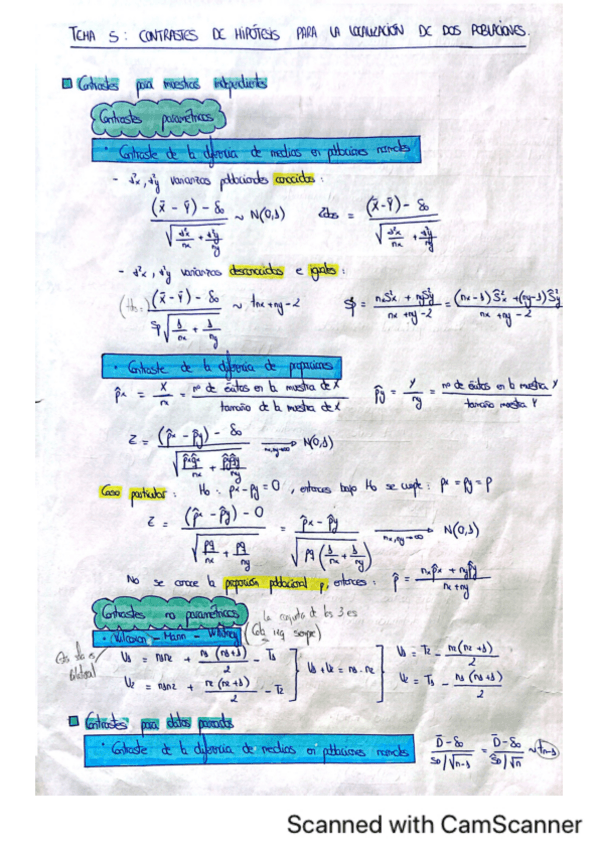 TEMA 5: CONTRASTES DE HIPÓTESIS PARA LA LOCALIZACIÓN DE DOS POBLACIONES.
Contrastes para muestras independientes
Contrastes paramétricos
· Contraste de la diferencia de medias en poblaciones normales
- σ²x, σ²y varianzas poblacionales conocidas:
((x̄ - ȳ) - δ₀) / √(σ²x/nx + σ²y/ny) ~ N(0,1)   Zobs = ((x̄ - ȳ) - δ₀) / √(σ²x/nx + σ²y/ny)
- σ²x, σ²y varianzas desconocidas e iguales:
((x̄ - ȳ) - δ₀) / (Sp √(1/nx + 1/ny)) ~ tnx+ny-2   Sp² = (nxS²x + nyS²y) / (nx + ny - 2) = ((nx-1)Ŝ²x + (ny-1)Ŝ²y) / (nx + ny - 2)
· Contraste de la diferencia de proporciones
p̂x = X/nx = nº de éxitos en la muestra de X / tamaño de la muestra de X   p̂y = Y/ny = nº de éxitos en la muestra Y / tamaño muestra Y
Z = ((p̂x - p̂y) - δ₀) / √(p̂xq̂x/nx + p̂yq̂y/ny) → nx,ny→∞ N(0,1)
Caso particular: H₀: px - py = 0, entonces bajo H₀ se cumple: px = py = p
Z = ((p̂x - p̂y) - 0) / √(pq/nx + pq/ny) = (p̂x - p̂y) / √(pq(1/nx + 1/ny)) → nx,ny→∞ N(0,1)
No se conoce la proporción poblacional p, entonces: p̂ = (nxp̂x + nyp̂y) / (nx + ny)
Contrastes no paramétricos
la conjunta de los 3 es
· Wilcoxon - Mann - Whitney
U₁ = n₁n₂ + n₁(n₁+1)/2 - T₁
U₂ = n₁n₂ + n₂(n₂+1)/2 - T₂
U₁ + U₂ = n₁·n₂
U₁ = T₂ - n₂(n₂+1)/2
U₂ = T₁ - n₁(n₁+1)/2
bilateral
Contrastes para datos pareados
· Contraste de la diferencia de medias en poblaciones normales
(D̄ - δ₀) / (SD/√n-1) = (D̄ - δ₀) / (ŜD/√n) ~ tn-1
Scanned with CamScanner